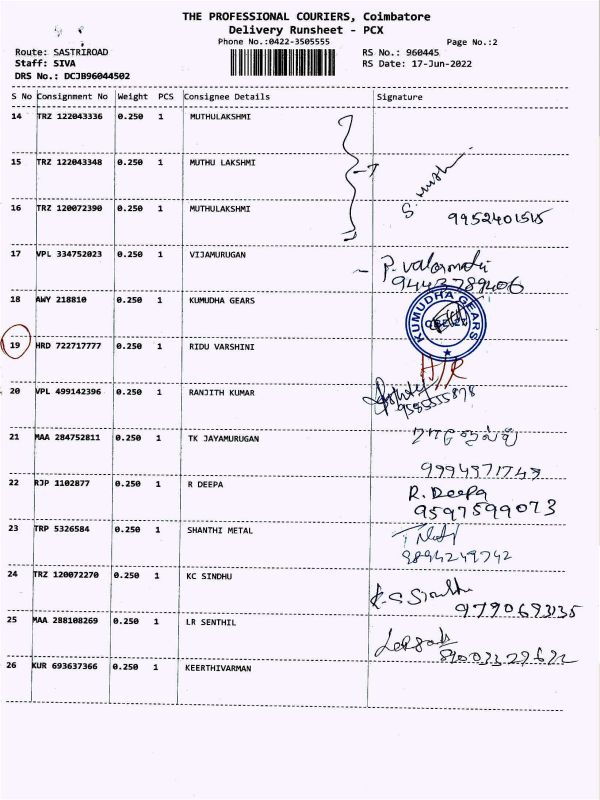 THE PROFESSIONAL COURIERS, Coimbatore
Delivery Runsheet - PCX
Phone No.:0422-3505555 Page No.:2
Route: SASTRIROAD RS No.: 960445
Staff: SIVA RS Date: 17-Jun-2022
DRS No.: DCJB96044502
S No Consignment No Weight PCS Consignee Details Signature
14 TRZ 122043336 0.250 1 MUTHULAKSHMI
15 TRZ 122043348 0.250 1 MUTHU LAKSHMI
16 TRZ 120072390 0.250 1 MUTHULAKSHMI
17 VPL 334752023 0.250 1 VIJAMURUGAN
P. Valarmathi
9443789406
18 AWY 218810 0.250 1 KUMUDHA GEARS KUMUDHA GEARS
19 HRD 722717777 0.250 1 RIDU VARSHINI
20 VPL 499142396 0.250 1 RANJITH KUMAR
9585555878
21 MAA 284752811 0.250 1 TK JAYAMURUGAN
22 RJP 1102877 0.250 1 R DEEPA R. Deepa
9597599073
23 TRP 5326584 0.250 1 SHANTHI METAL
9894249742
24 TRZ 120072270 0.250 1 KC SINDHU K.C Sindhu
25 MAA 288108269 0.250 1 LR SENTHIL
26 KUR 693637366 0.250 1 KEERTHIVARMAN